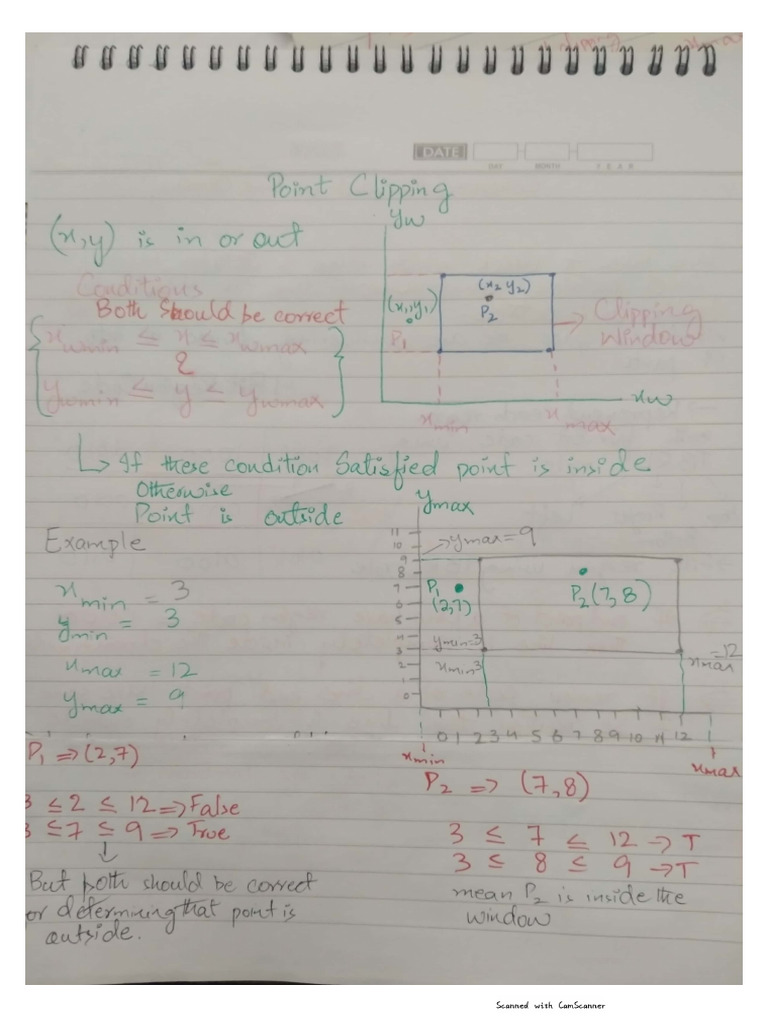 DATE
DAY MONTH YEAR
Point Clipping
(x,y) is in or out
Conditions
Both Should be correct
xwmin ≤ x ≤ xwmax
&
ywmin ≤ y ≤ ywmax
yw
(x1,y1)
P1
(x2 y2)
P2
Clipping
Window
xw
xmin
xmax
↳ If these condition Satisfied point is inside
Otherwise
Point is outside
Example
xmin = 3
ymin = 3
xmax = 12
ymax = 9
ymax
ymax = 9
11
10
9
8
7
6
5
4
3
2
1
0
P1
(2,7)
P2(7,8)
ymin=3
xmin=3
xmax=12
0 1 2 3 4 5 6 7 8 9 10 11 12
xmin
xmax
P1 => (2,7)
3 ≤ 2 ≤ 12 => False
3 ≤ 7 ≤ 9 => True
But both should be correct
or determining that point is
outside.
P2 => (7,8)
3 ≤ 7 ≤ 12 → T
3 ≤ 8 ≤ 9 → T
mean P2 is inside the
window
Scanned with CamScanner